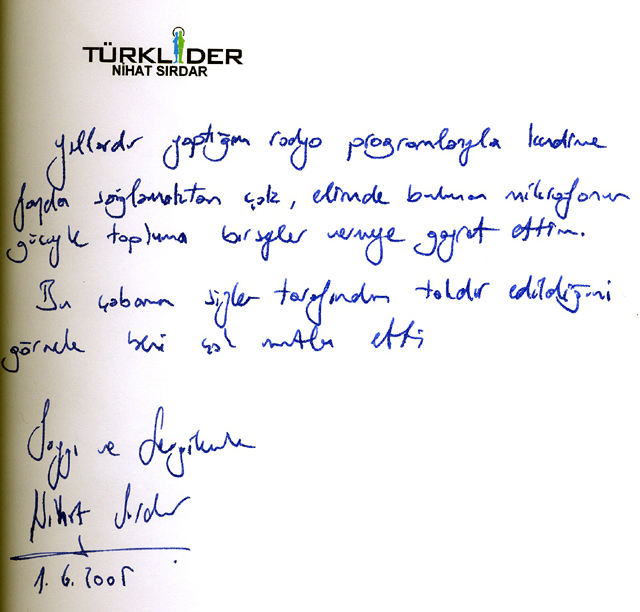 TÜRKLİDER
NİHAT SIRDAR
Yıllardır yaptığım radyo programlarıyla kendime
fayda sağlamaktan çok, elimde bulunan mikrofonun
gücüyle topluma birşeyler vermeye gayret ettim.
Bu çabamın sizler tarafından takdir edildiğini
görmek beni çok mutlu etti
Saygı ve Sevgilerimle
Nihat Sırdar
1.6.2005